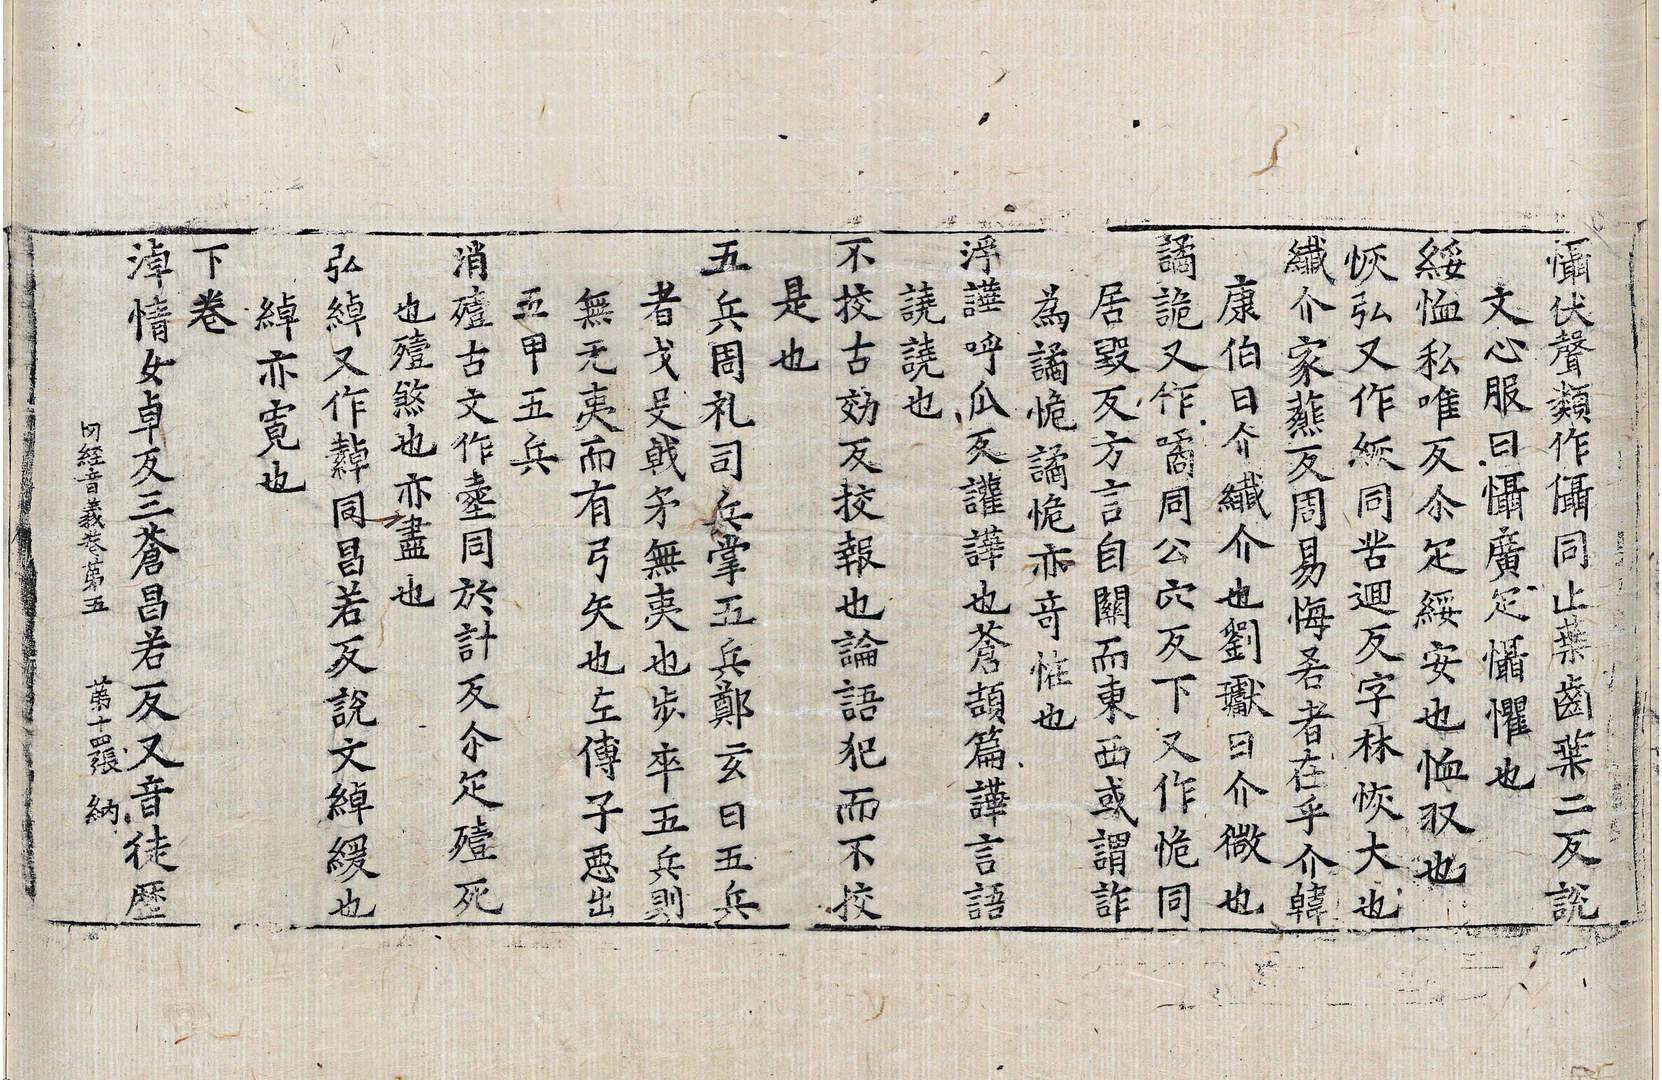 懾伏聲類作㒤同止葉齒葉二反說
文心服曰懾廣疋懾懼也
綏恤私唯反尒疋綏安也恤収也
恢弘又作㤥同苦迴反字林恢大也
纖介家薤反周易悔吝者在乎介韓
康伯曰介纖介也劉瓛曰介微也
譎詭又作噊同公穴反下又作恑同
居毀反方言自關而東西或謂詐
為譎恑譎恑亦奇恠也
浮譁呼瓜反讙譁也蒼頡篇譁言語
譊譊也
不挍古効反挍報也論語犯而不挍
是也
五兵周礼司兵掌五兵鄭玄曰五兵
者戈殳戟矛無夷也步卒五兵則
無无夷而有弓矢也左傳子惡出
五甲五兵
消殪古文作壼同於計反尒疋殪死
也殪煞也亦盡也
弘綽又作繛同昌若反說文綽緩也
綽亦寬也
下卷
淖情女卓反三蒼昌若反又音徒歷
內經音義卷第五 第十四張 納